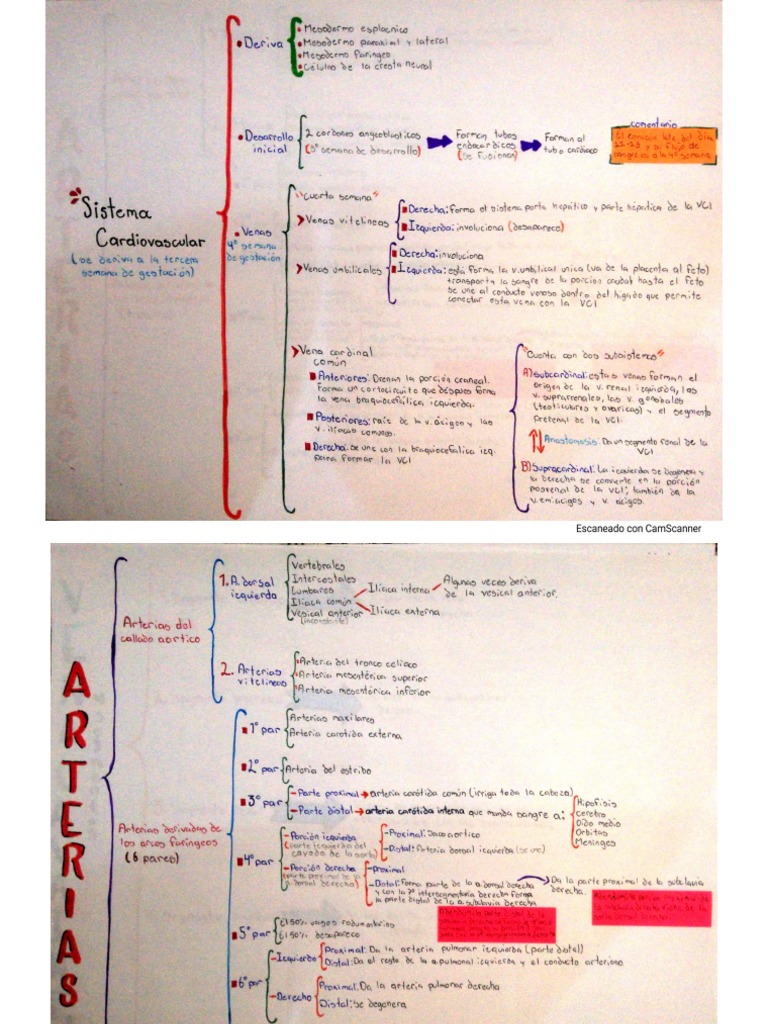 Sistema
Cardiovascular
(se deriva a la tercera
semana de gestación)
Deriva
Mesodermo esplacnico
Mesodermo paraxial y lateral
Mesodermo faríngeo
Células de la cresta neural
Desarrollo
inicial
2 cordones angeoblasticos
(3° semana de desarrollo)
Forman tubos
endocardicos
(se fusionan)
Forman al
tubo cardiaco
comentario
22-23 y el flujo de
sangre es a la 4° semana
Venas
4° semana
de gestación
"Cuarta semana"
Venas vitelineas
Derecha: forma el sistema porta hepático y parte hepática de la VCI
Izquierda: involuciona (desaparece)
Venas umbilicales
Derecha: involuciona
Izquierda: está forma la v. umbilical unica (va de la placenta al feto)
transporta la sangre de la porcion caudal hasta el feto
se une al conducto venoso dentro del higado que permite
conectar esta vena con la VCI
Vena cardinal
común
Anteriores: Drenan la porción craneal.
Forma un cortocircuito que después forma
la vena braquiocefálica izquierda.
Posteriores: raíz de la v. ácigos y las
v. iliacas comunes.
Derecha: se une con la braquiocefalica izq.
para formar la VCI
"Cuenta con dos subsistemas"
A) Subcardinal: estas venas forman el
origen de la v. renal izquierda, las
v. suprarrenales, las v. gonadales
(testiculares y ovaricas) y el segmento
prerenal de la VCI.
Anastomosis: Da un segmento renal de la
VCI
B) Supracardinal: La izquierda se degenera y
la derecha se convierte en la porción
posrenal de la VCI; también da la
v. emiácigos y v. ácigos.
Escaneado con CamScanner
ARTERIAS
Arterias del
callado aortico
1. A. dorsal
izquierda
Vertebrales
Intercostales
Lumbares
Ilíaca común
Vesical anterior
(inconstante)
Ilíaca interna
Algunas veces deriva
de la vesical anterior.
Ilíaca externa
2. Arterias
vitelineas
Arteria del tronco celiaco
Arteria mesentérica superior
Arteria mesentérica inferior
Arterias derivadas de
los arcos faríngeos
(6 pares)
1° par
Arterias maxilares
Arteria carotida externa
2° par
Arteria del estribo
3° par
Parte proximal → arteria carótida común (irriga toda la cabeza)
Parte distal → arteria carótida interna que manda sangre a:
Hipofisis
cerebro
Oido medio
Orbitas
Meninges
4° par
Porción izquierda
(parte izquierda del
cayado de la aorta)
Proximal: Saco aortico
Distal: Arteria dorsal izquierda (se une)
Porción derecha
(parte proximal de la
a. dorsal derecha)
Proximal
Distal: Forma parte de la a. dorsal derecha
y con la 7° intersegmentaria derecha forma
la parte distal de la a. subclavia derecha
Da la parte proximal de la subclavia
derecha.
5° par
El 50% vasos rudimentarios
El 50% desaparece
6° par
Izquierdo
Proximal: Da la arteria pulmonar izquierda (parte distal)
Distal: Da el resto de la a. pulmonal izquierda y el conducto arterioso
Derecho
Proximal: Da la arteria pulmonar derecha
Distal: Se degenera